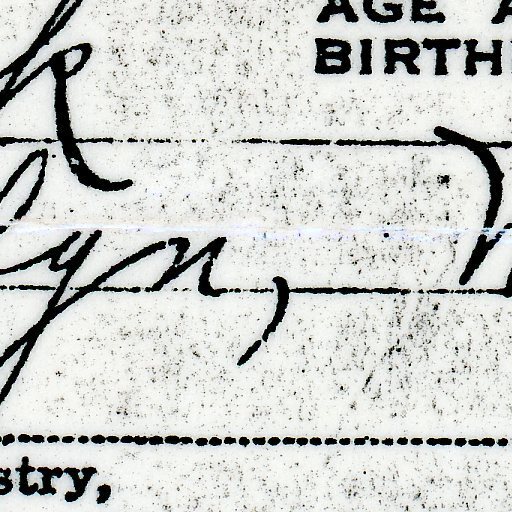 AGE A
BIRTH
k
lyn, N
stry,